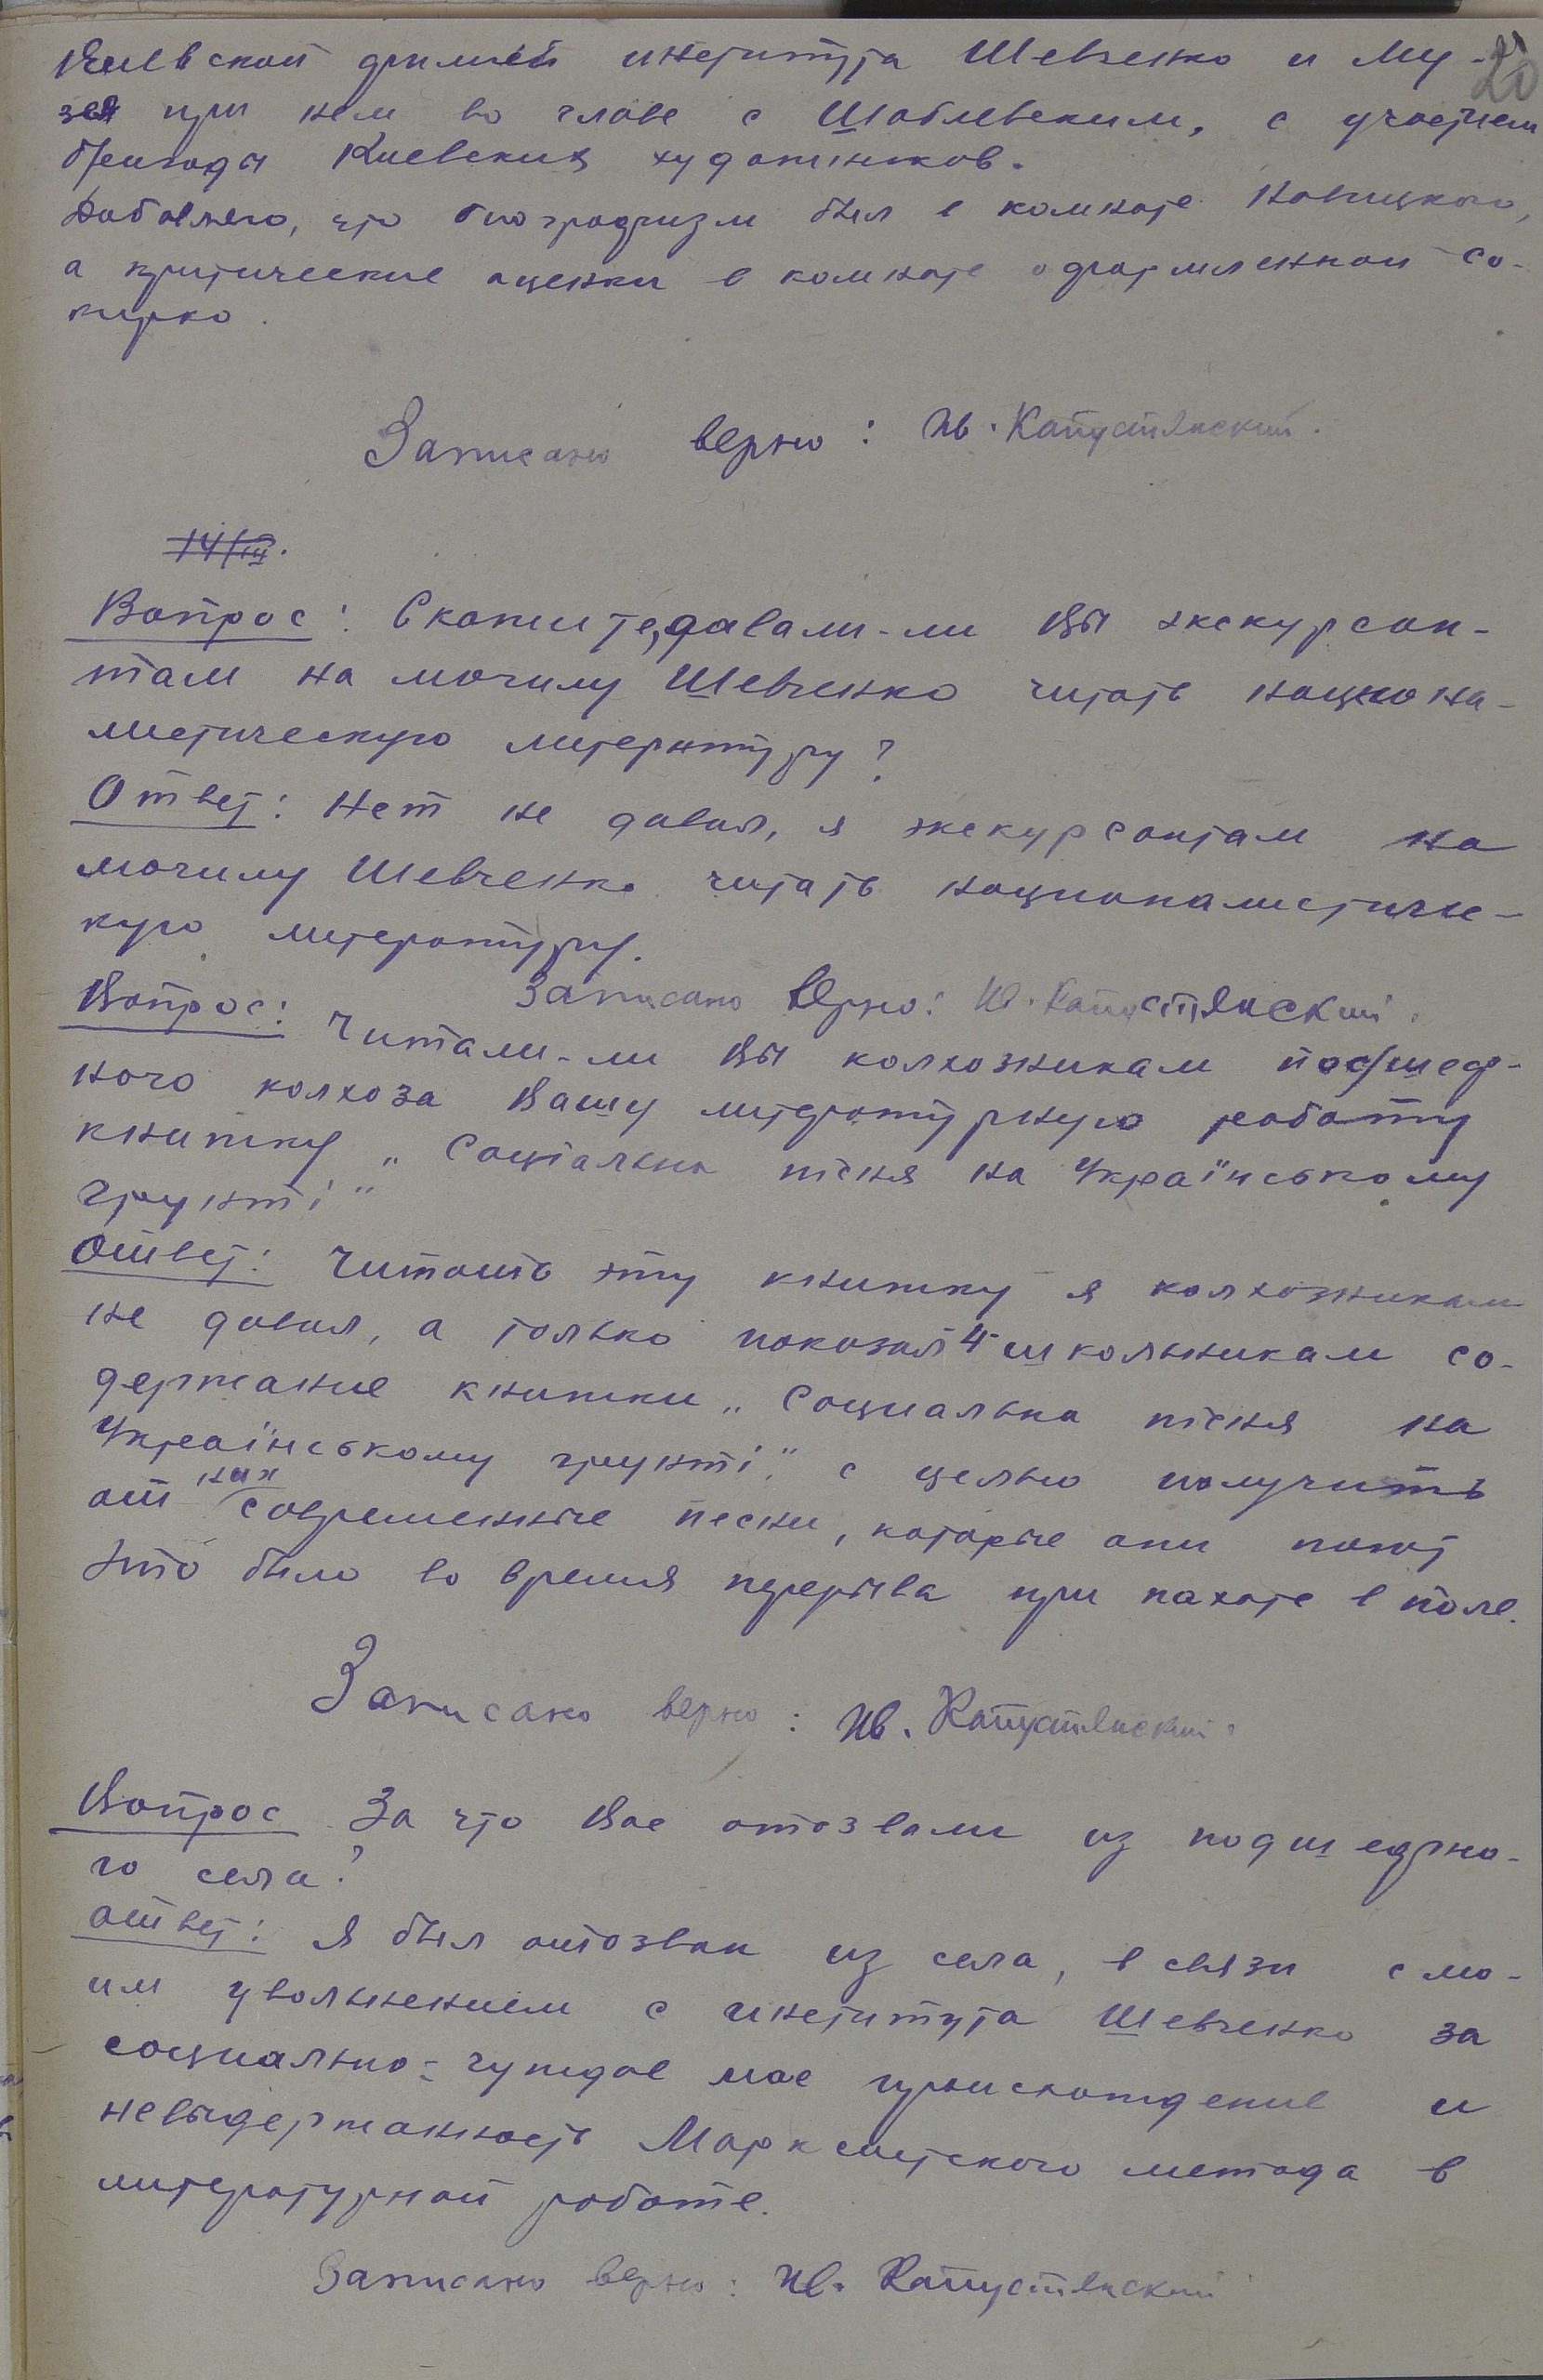 20
Киевской филией института Шевченко и Му-
зея при нем во главе с Шаблевским, с участием
бригады Киевских художников.
Добавляю, что биографизм был в комнате Новицкого,
а критические оценки в комнате оформленной Со-
кирко.
Записано верно: Ив. Капустянский.
14/III.
Вопрос: Скажите, давали-ли Вы экскурсан-
там на могилу Шевченко читать национа-
листическую литературу?
Ответ: Нет не давал, я экскурсантам на
могилу Шевченко читать националистиче-
кую литературу.
Записано Верно: Ив. Капустянский.
Вопрос: Читали-ли Вы колхозникам подшеф-
ного колхоза Вашу литературную работу
книжку „Соціальна пісня на Українському
грунті"
Ответ: Читать эту книжку я колхозникам
не давал, а только показал 4-м школьникам со-
держание книжки „Социальна пісня на
Українському грунті." с целью получить
от них современные песни, которые они поют
Это было во время перерыва при пахоте в поле.
Записано верно: Ив. Капустянский.
Вопрос За что Вас отозвали из подшефно-
го села?
Ответ: Я был отозван из села, в связи с мо-
им увольнением с института Шевченко за
социально-чуждое мое происхождение и
невыдержанность Марксистского метода в
литературной работе.
Записано верно: Ив. Капустянский